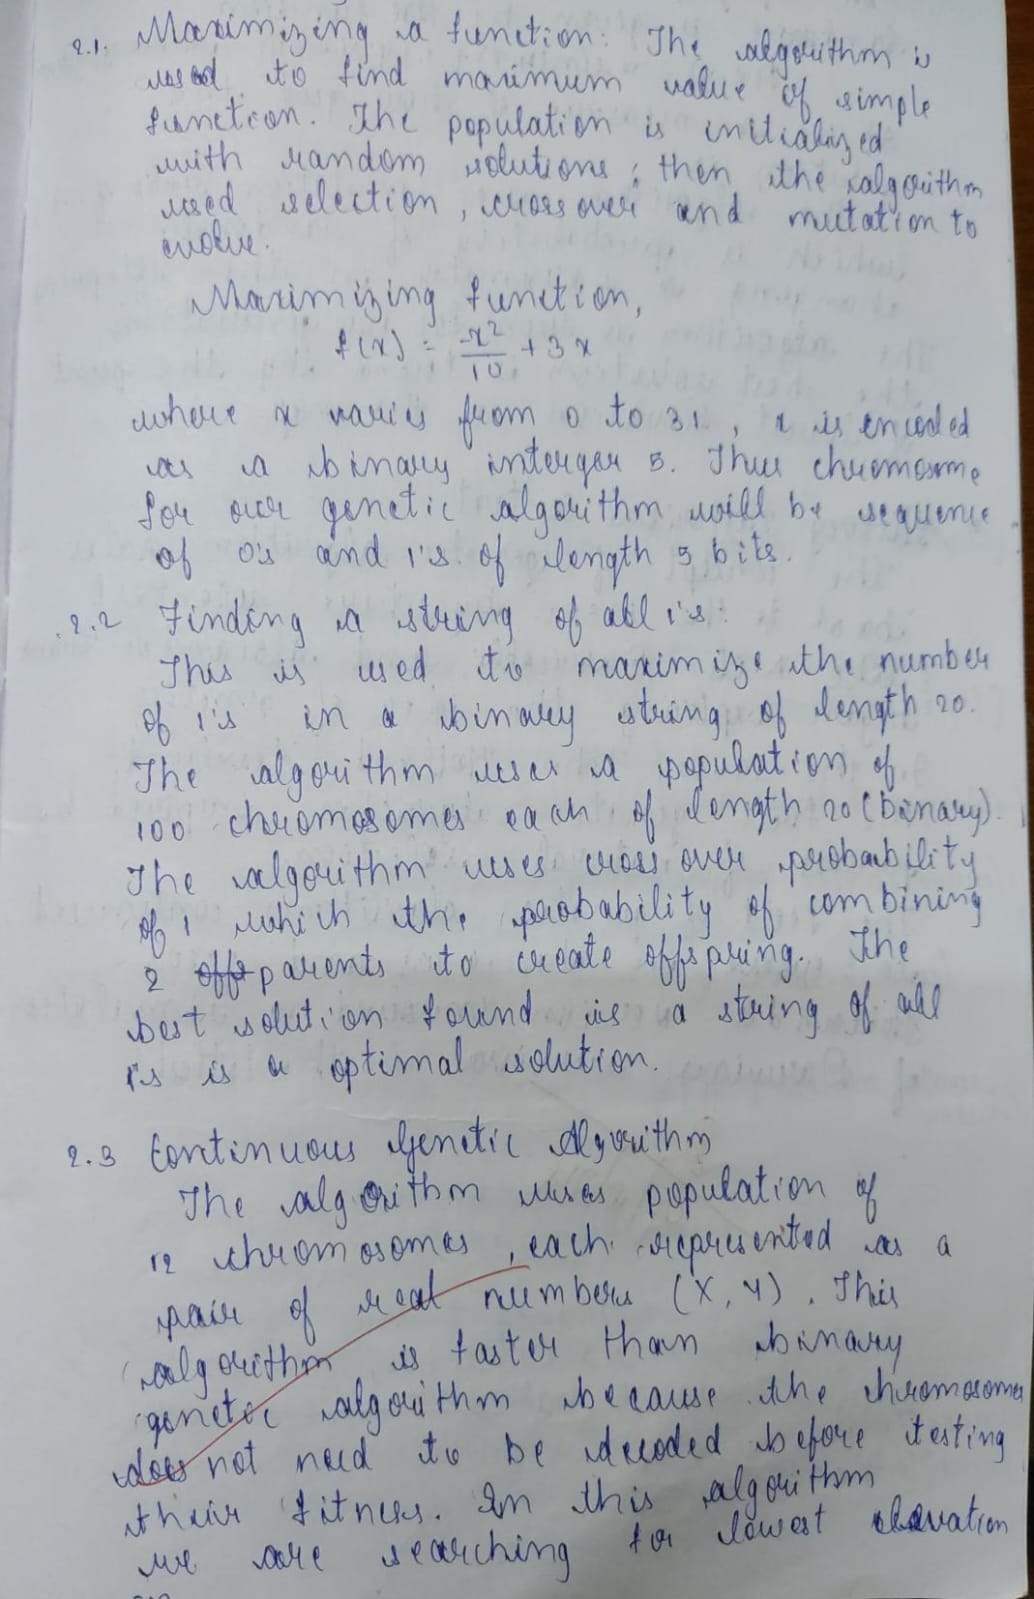 2.1. Maximizing a function: The algorithm is
used to find maximum value of simple
function. The population is initialized
with random solutions; then the algorithm
used selection, crossover and mutation to
evolve.
Maximizing function,
f(x) = -x²/10 + 3x
where x varies from 0 to 31, x is encoded
as a binary interger 5. Thus chromosome
for our genetic algorithm will be sequence
of 0's and 1's of length 5 bits.
2.2 Finding a string of all 1's:
This is used to maximize the number
of 1's in a binary string of length 20.
The algorithm uses a population of
100 chromosomes each of length 20 (binary).
The algorithm uses cross over probability
of 1 which the probability of combining
2 parents to create offspring. The
best solution found is a string of all
1's is a optimal solution.
2.3 Continuous Genetic Algorithm
The algorithm uses population of
12 chromosomes, each represented as a
pair of real numbers (X, Y). This
algorithm is faster than binary
genetic algorithm because the chromosomes
does not need to be decoded before testing
their fitness. In this algorithm
we are searching for lowest elevation